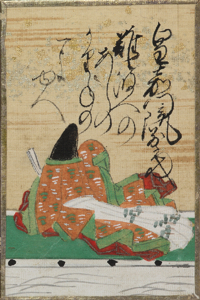 皇嘉門院別当
難波江の
あしの
かりねの
一よ
ゆへ